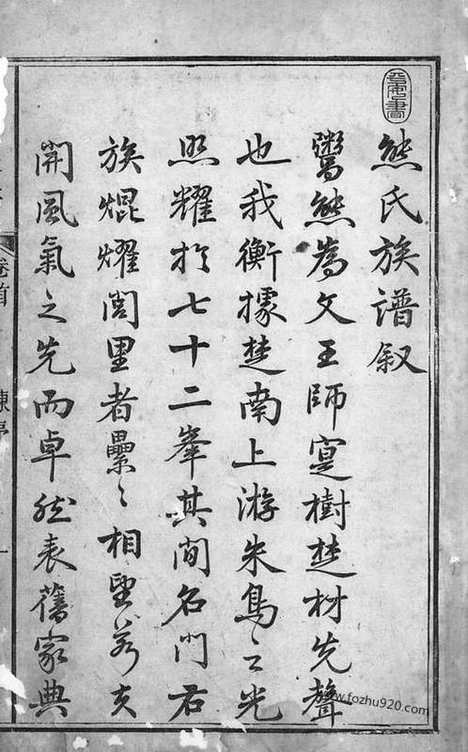 熊氏族譜叙
鬻熊為文王師寔樹楚材先聲
也我衡據楚南上游朱鳥之光
照耀於七十二峯其間名門右
族焜耀閭里者纍〻相望若夫
開風氣之先而卓然表舊家典
卷首
www.fozhu920.com